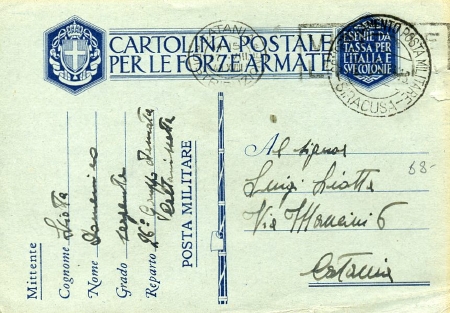 CARTOLINA POSTALE
PER LE FORZE ARMATE
ESENTE DA
TASSA PER
L'ITALIA E
SVE COLONIE
CATANIA
POSTA MILITARE
SIRACUSA
Mittente
Cognome Liotta
Nome Domenico
Grado sergente
Reparto 26° Armata
POSTA MILITARE
Al signor
Luigi Liotta
Via Mancini 6
Catania
68-